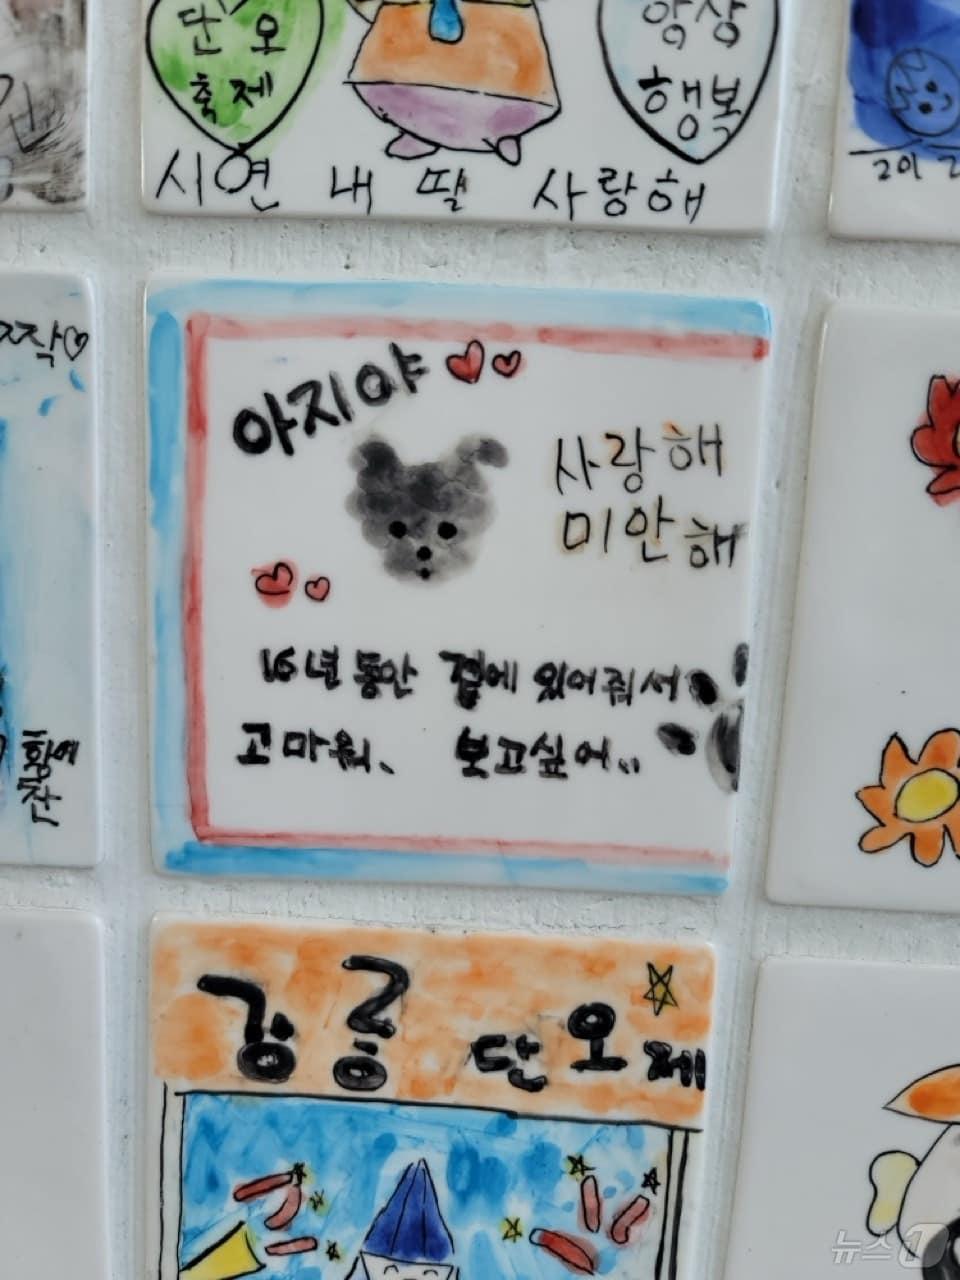 단오
축제
항상
행복
시연 내 딸 사랑해
아지야
사랑해
미안해
16년 동안 곁에 있어줘서
고마워. 보고싶어..
강릉 단오제
뉴스1